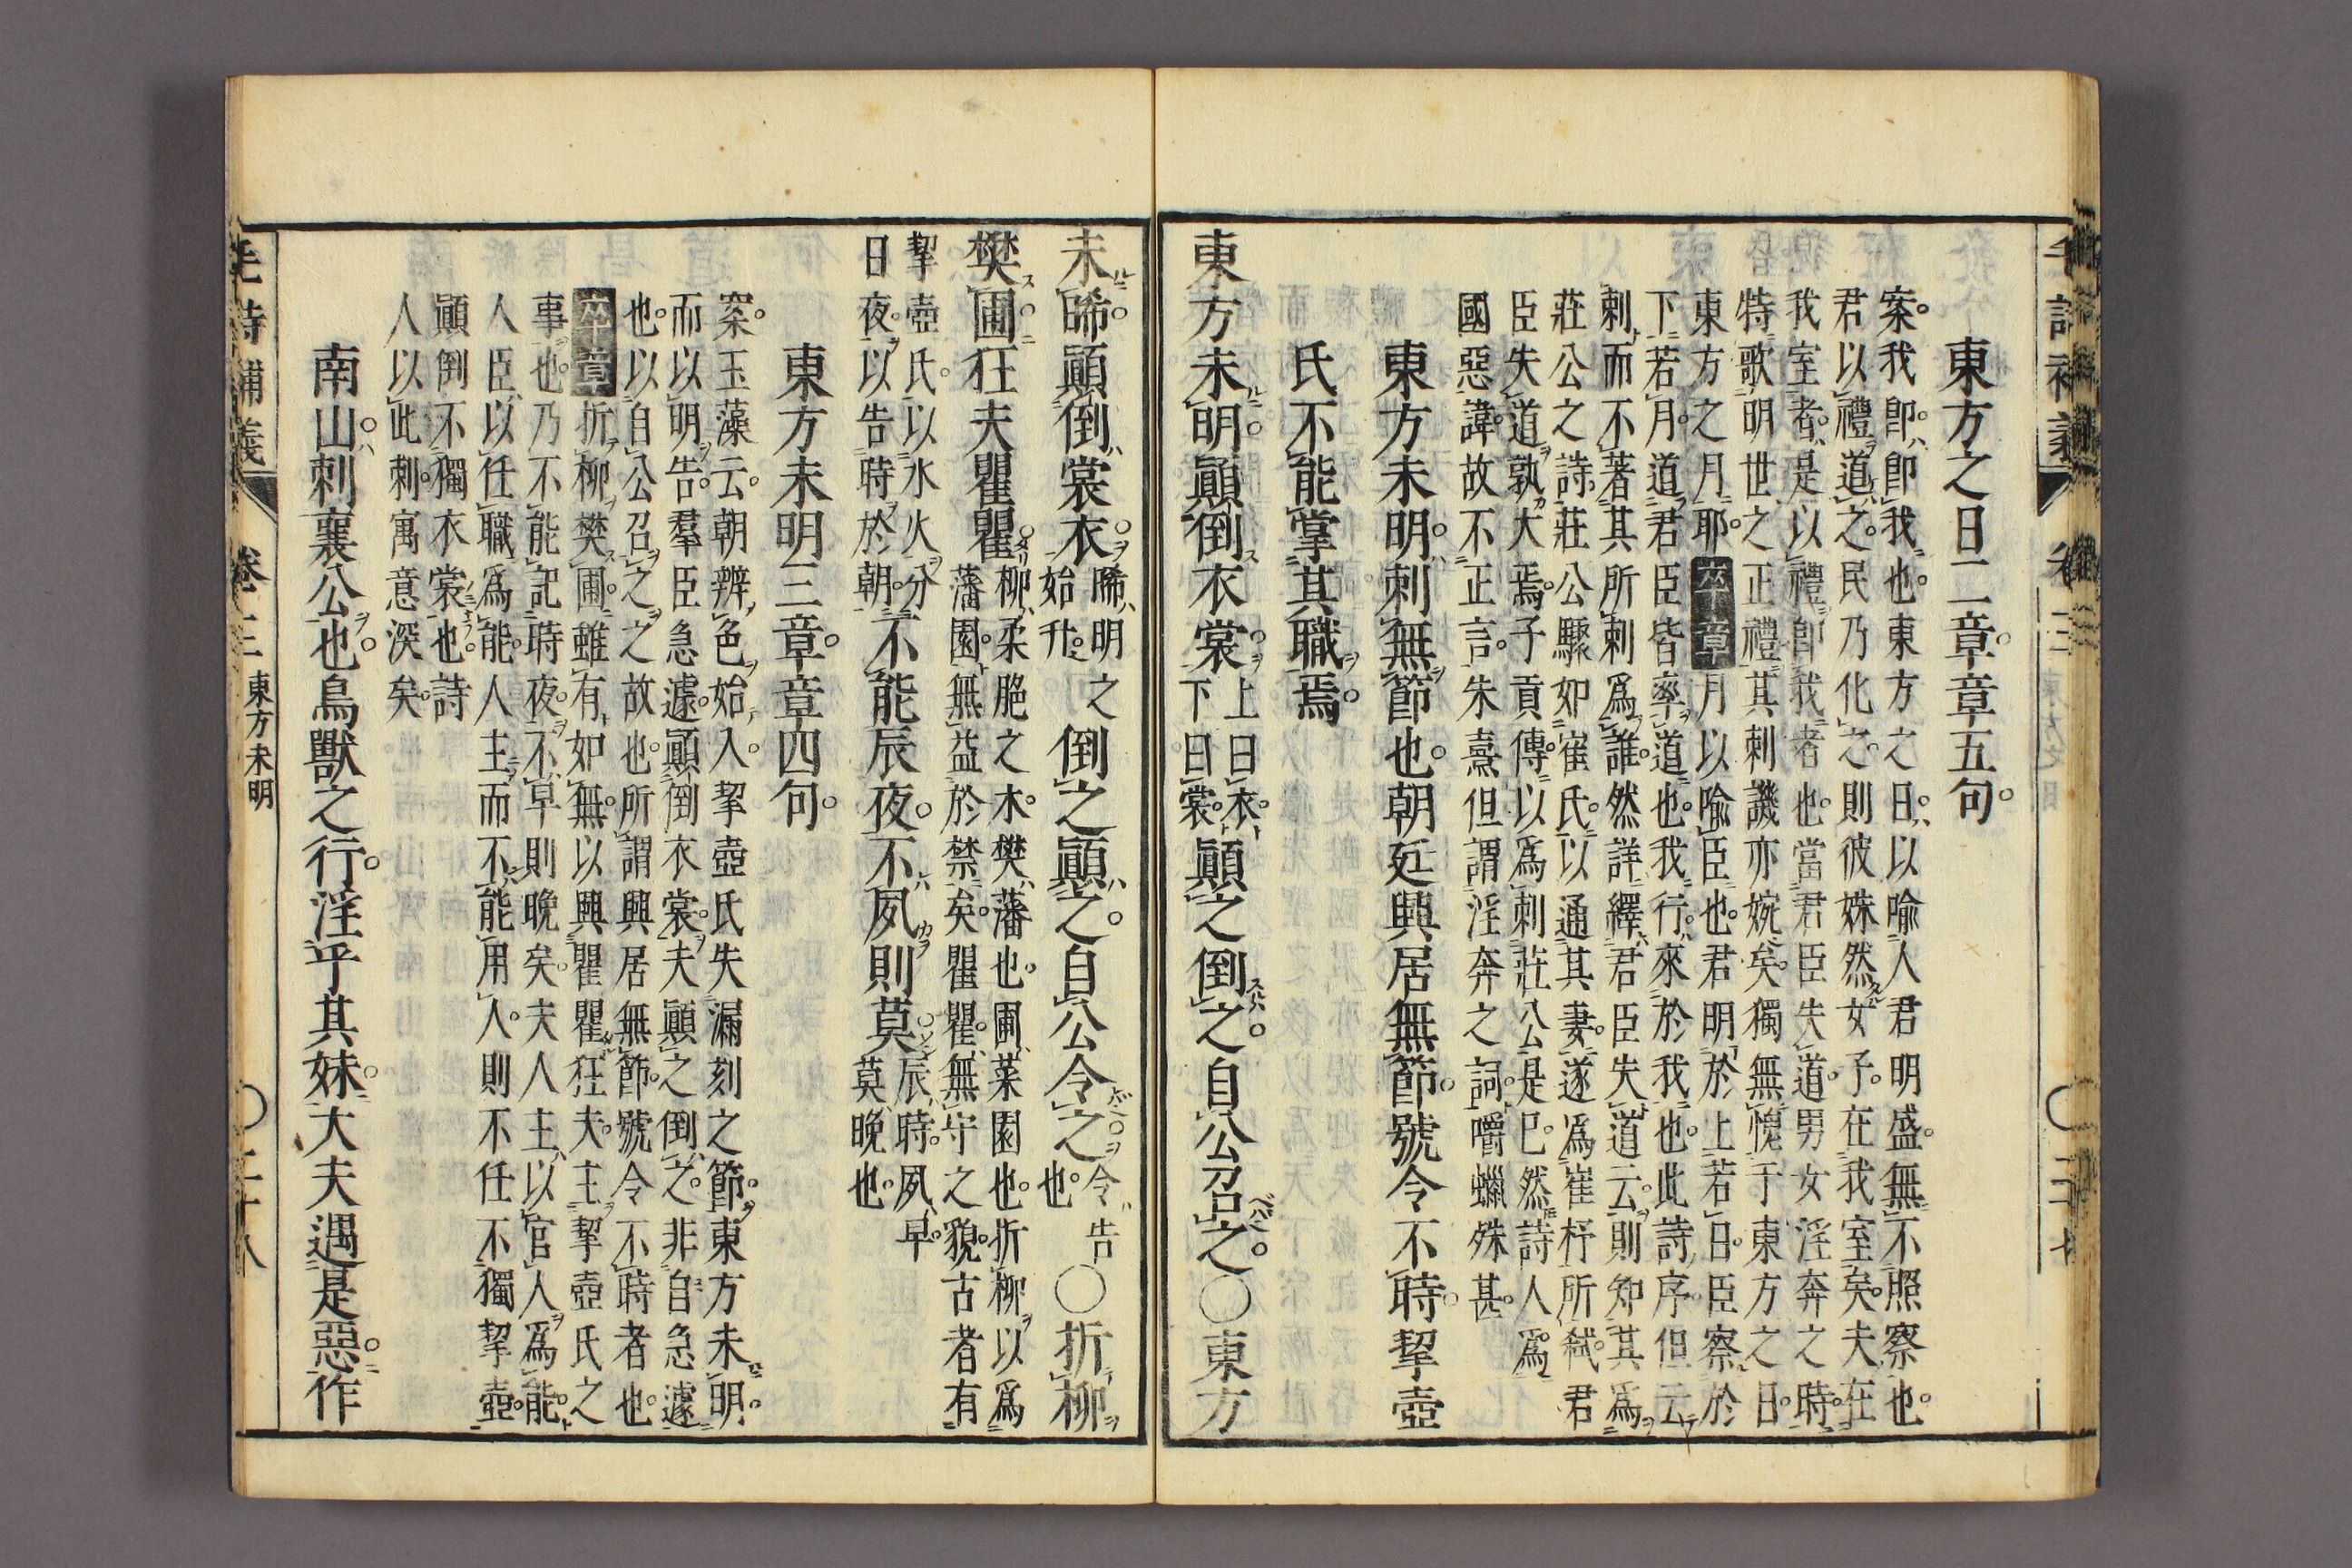 東方之日二章章五句
案我卽卽我也東方之日以喩人君明盛無不照察也
君以禮道之民乃化之則彼姝然女子在我室矣夫在
我室者是以禮卽我者也當君臣失道男女淫奔之時
特歌明世之正禮其刺譏亦婉矣獨無愧于東方之日
東方之月耶卒章月以喩臣也君明於上若日臣察於
下若月道君臣皆率道也我行來於我也此詩序但云
刺而不著其所刺爲誰然詳繹君臣失道云則知其爲
莊公之詩莊公驟如崔氏以通其妻遂爲崔杼所弑君
臣失道孰大焉子貢傳以爲刺莊公是已然詩人爲
國惡諱故不正言朱熹但謂淫奔之詞嚼蠟殊甚
東方未明刺無節也朝廷興居無節號令不時挈壺
氏不能掌其職焉
東方未明顚倒衣裳上曰衣下曰裳顚之倒之自公召之○東方
未晞顚倒裳衣晞明之始升倒之顚之自公令之令告也○折柳
樊圃狂夫瞿瞿柳柔脆之木樊藩也圃菜園也折柳以爲藩園無益於禁矣瞿瞿無守之貌古者有
挈壺氏以水火分日夜以告時於朝不能辰夜不夙則莫辰時夙早莫晚也
東方未明三章章四句
案玉藻云朝辨色始入挈壺氏失漏刻之節東方未明
而以明告羣臣急遽顚倒衣裳夫顚之倒之非自急遽
也以自公召之之故也所謂興居無節號令不時者也
卒章折柳樊圃雖有如無以興瞿瞿狂夫主挈壺氏之
事也乃不能記時夜不早則晚矣夫人主以官人爲能
人臣以任職爲能人主而不能用人則不任不獨挈壺
顚倒不獨衣裳也詩
人以此刺寓意深矣
南山刺襄公也鳥獸之行淫乎其妹大夫遇是惡作
毛詩補義 卷三 東方未明 ○三十八